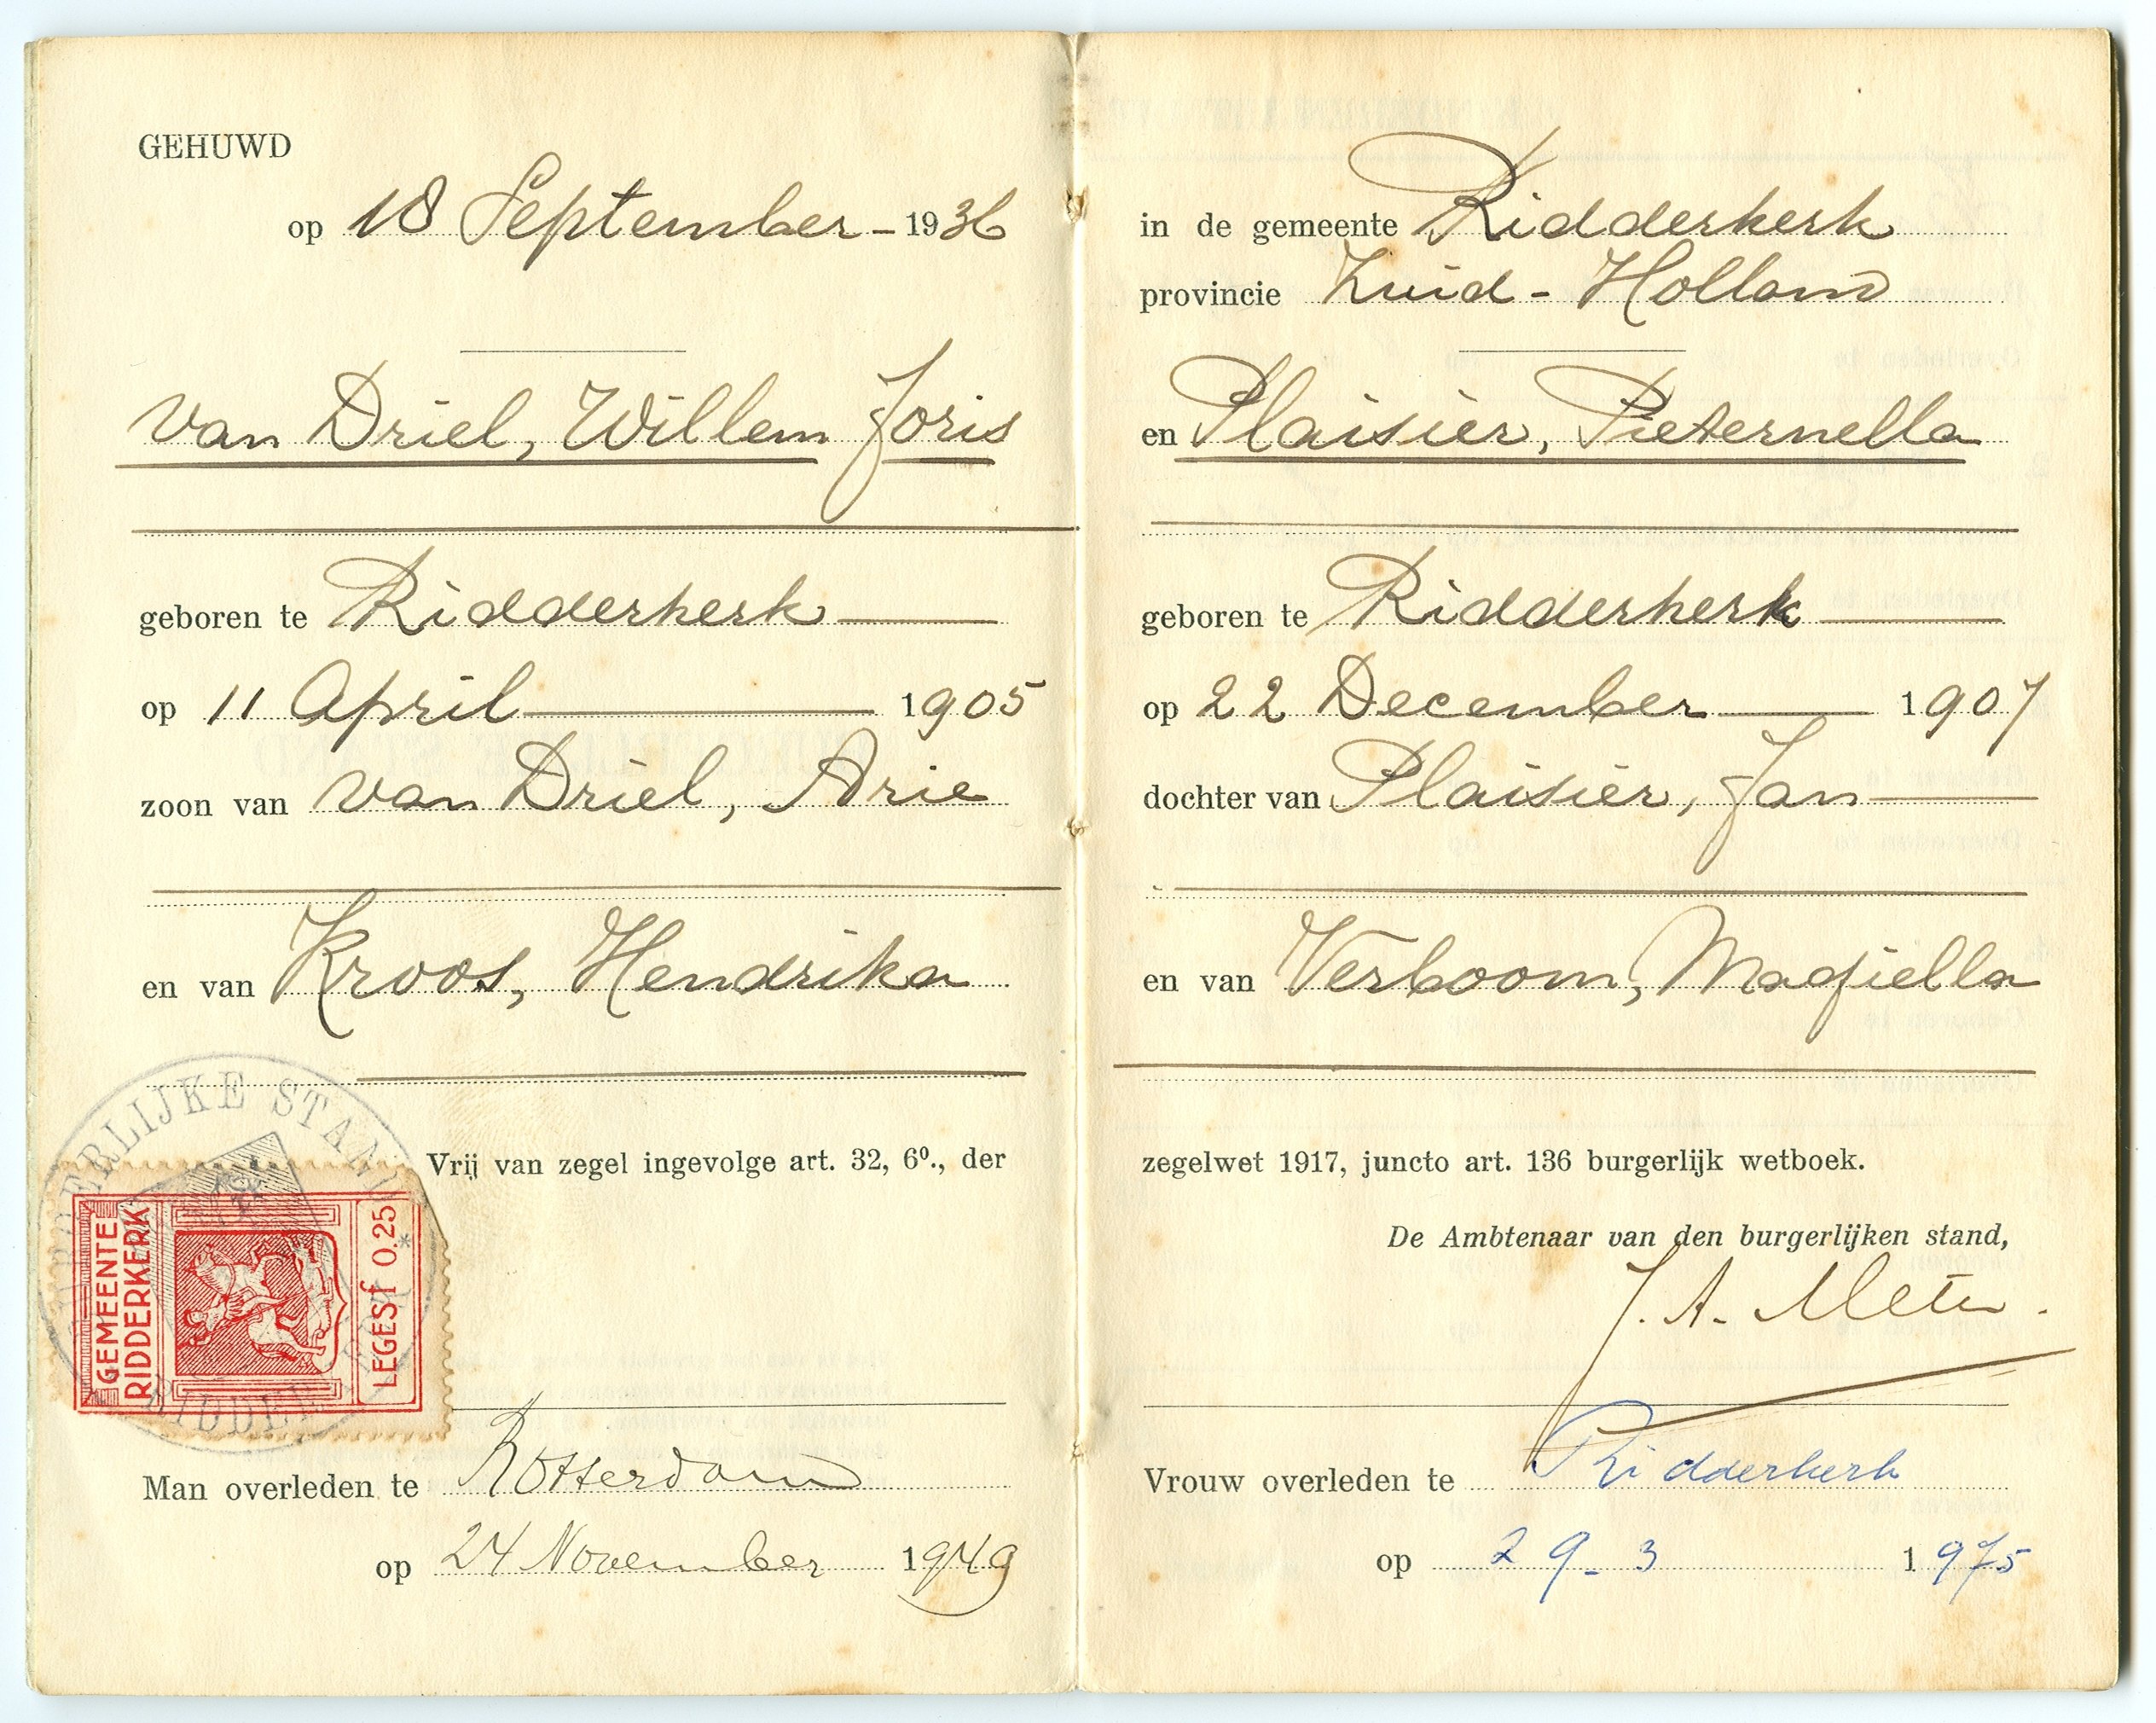 GEHUWD
op 18 September - 1936
van Driel, Willem Joris
geboren te Ridderkerk
op 11 April 1905
zoon van van Driel, Arie
en van Kroos, Hendrika
Vrij van zegel ingevolge art. 32, 6⁰., der
GEMEENTE
RIDDERKERK
LEGES f 0.25
Man overleden te Rotterdam
op 24 November 1949
in de gemeente Ridderkerk
provincie Zuid-Holland
en Plaisier, Pieternella
geboren te Ridderkerk
op 22 December 1907
dochter van Plaisier, Jan
en van Verboom, Magiella
zegelwet 1917, juncto art. 136 burgerlijk wetboek.
De Ambtenaar van den burgerlijken stand,
J. A.
Vrouw overleden te Ridderkerk
op 29-3 1975